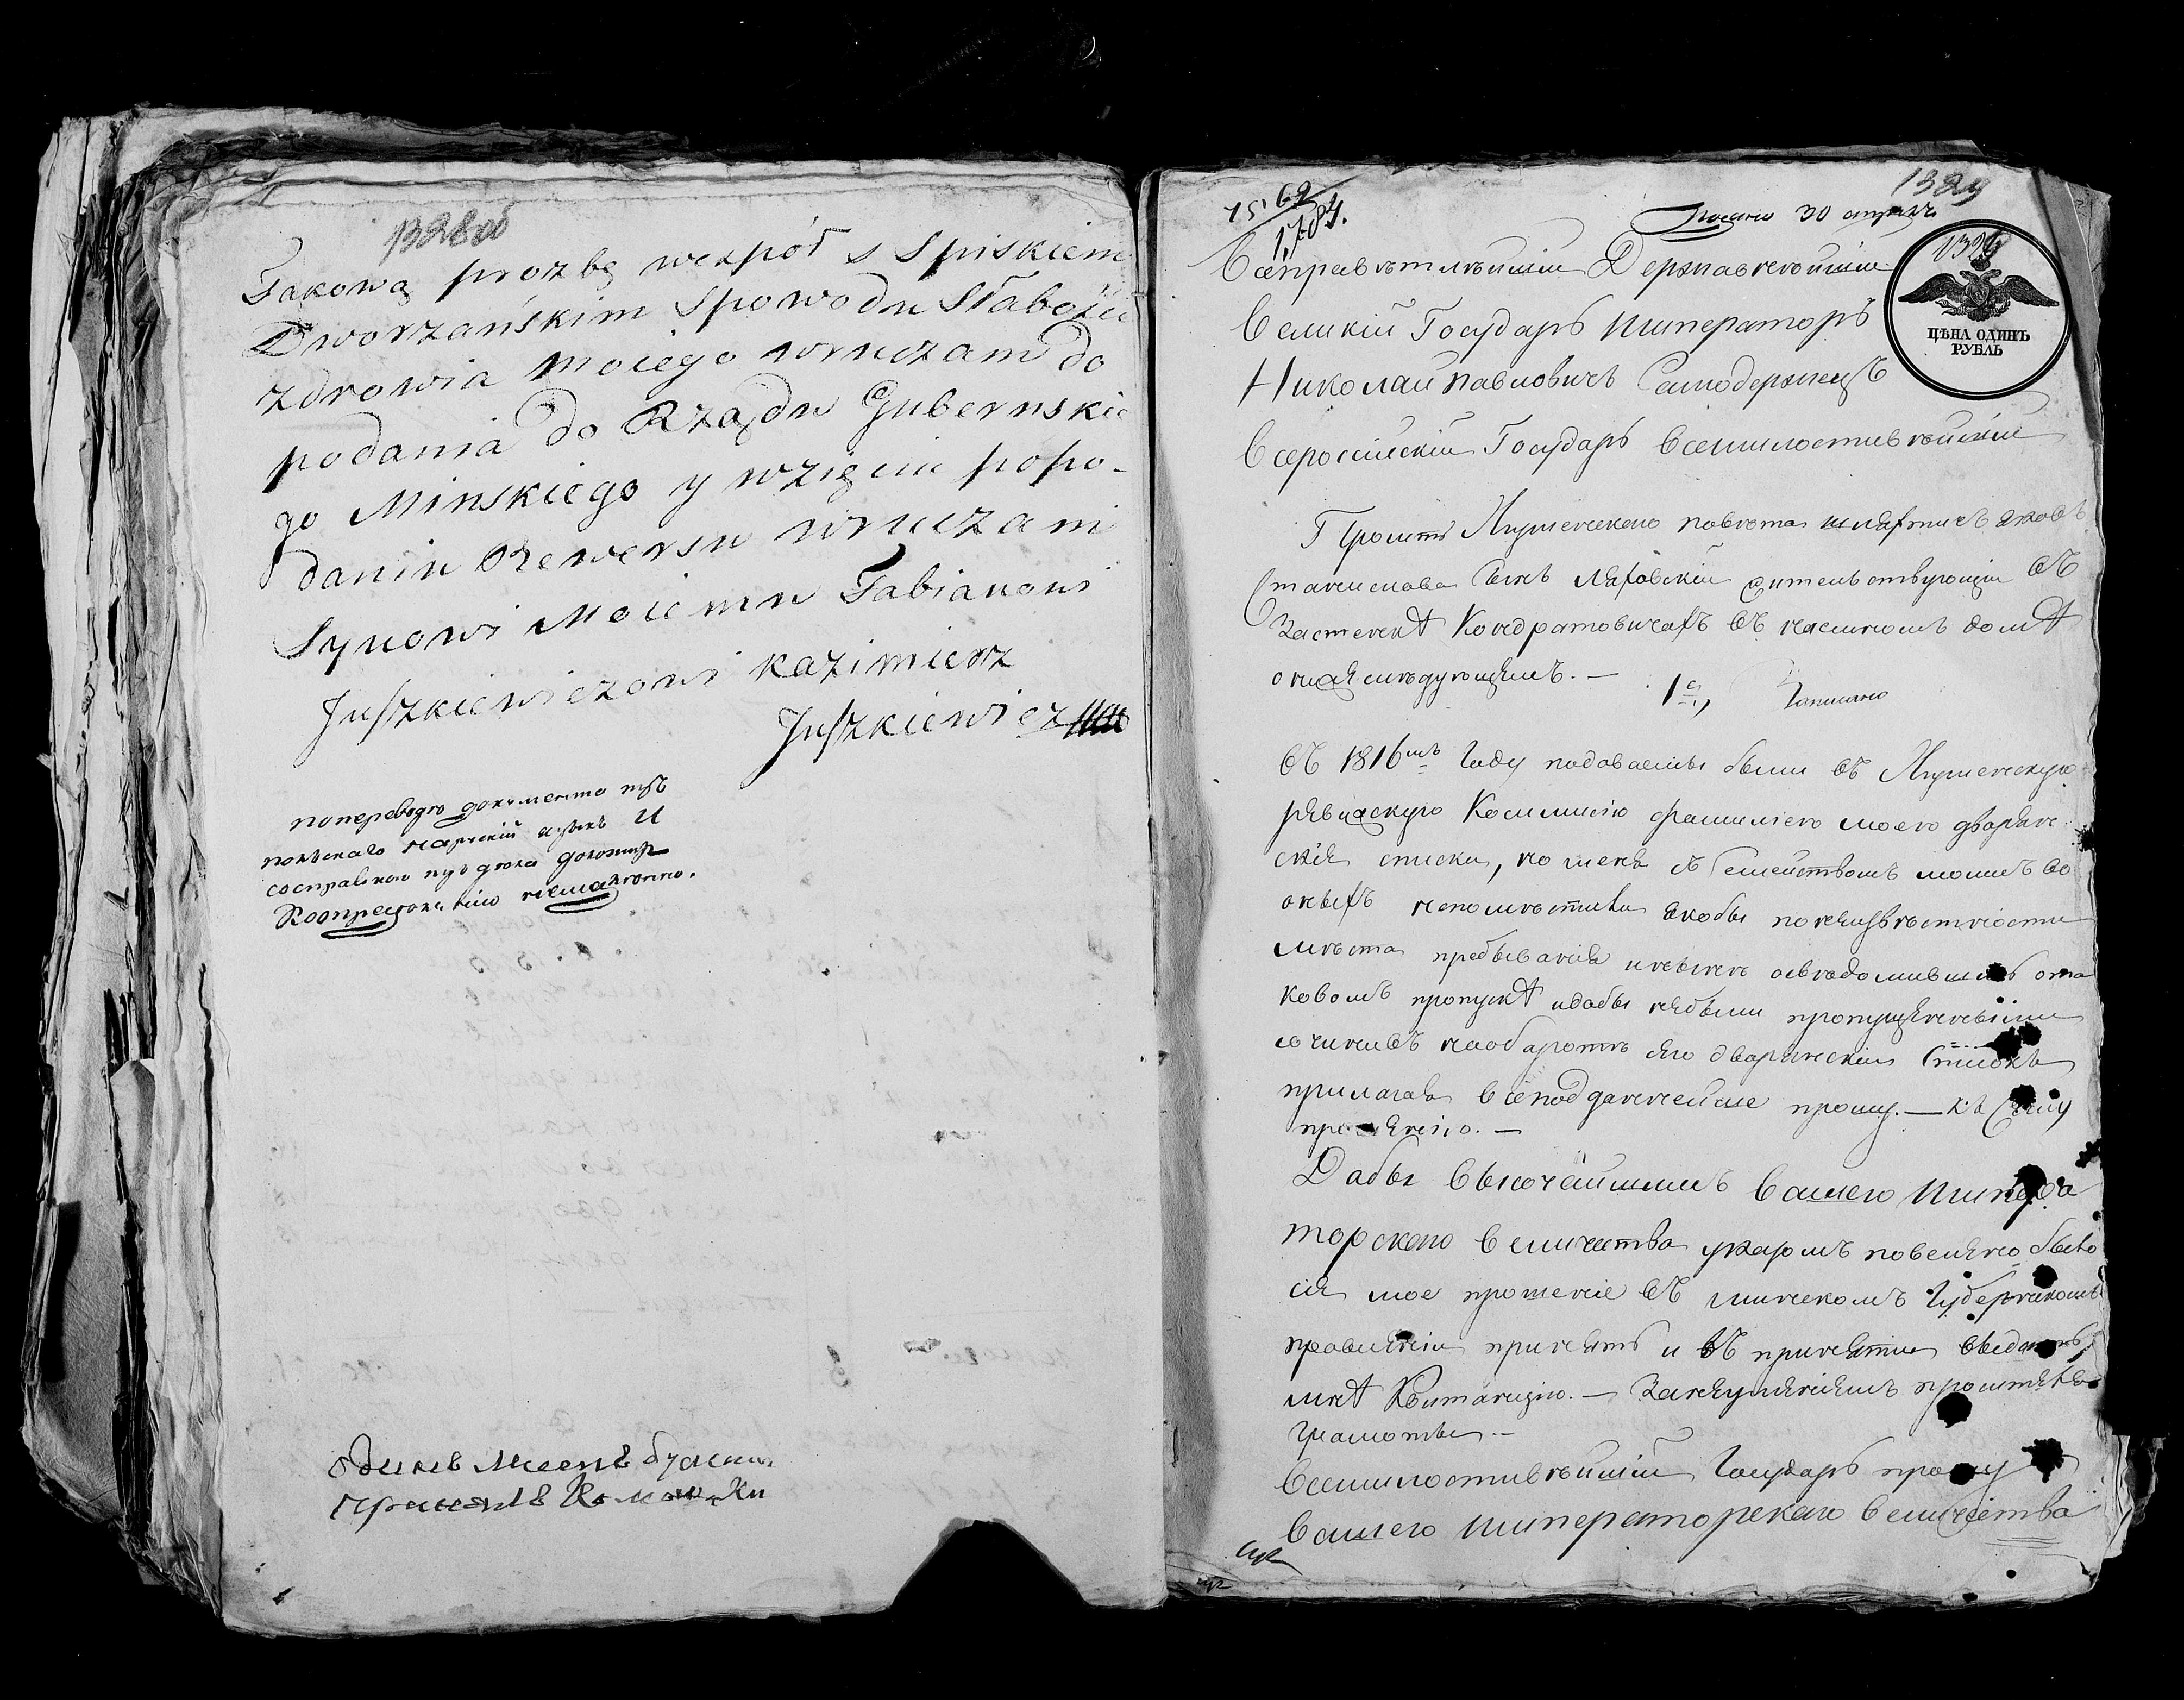 1328об
Takową prozbę wespół s Spiskiem
Dworzańskim Spowodu Słabości
zdrowia Mojego wruczam do
podania do Rządu Gubernskie
go Minskiego y wzięciu popo-
daniu Rewersu wruczam
Synowi Mojemu Fabianowi
Juszkiewiczowi Kazimierz
Juszkiewicz
попереводе документа
польскаго
одинъ
принялъ
1329
Подано 30 апреля
1329
ЦѢНА ОДИНЪ
РУБЛЬ
Всепресветлейшiй Державнейшiй
Великiй Государь Императоръ
Николай Павловичъ Самодержецъ
Всероссiйскiй Государь Всемилостивейшiй
Проситъ Игуменского повета шляхтичъ Яковъ
Станислава Сынъ Ляховскiй жительствующiй въ
Застенкѣ Кондратовичахъ въ наемномъ домѣ
онаяследующемъ. —
1е, Написано
въ 1816мъ Году подаваемы были въ Игуменскую
ревизскую Коммисiю фамилiею моею дворянс
кiя списки, но меня съ Семействомъ моимъ во
оныхъ непоместили якобы понеизвестности
места пребыванiя инынче осведомившись ота
ковомъ пропускѣ идабы небыли пропущенными
сочинивъ наоборотѣ его дворянскiй Списокъ
прилагая всеподданнейше прошу. — къ Сему
прошенiю. —
Дабы высочайшимъ вашего Импера
торского величества указомъ повелено было
сiя мое прошенiе въ минскомъ Губернскомъ
правленiи принять и въ принятiи выдать
мнѣ Квитанцiю. — Занеуменiемъ просителя
Грамоты. —
Всемилостивейшiй Государь прошу
Вашего Императорскаго величества